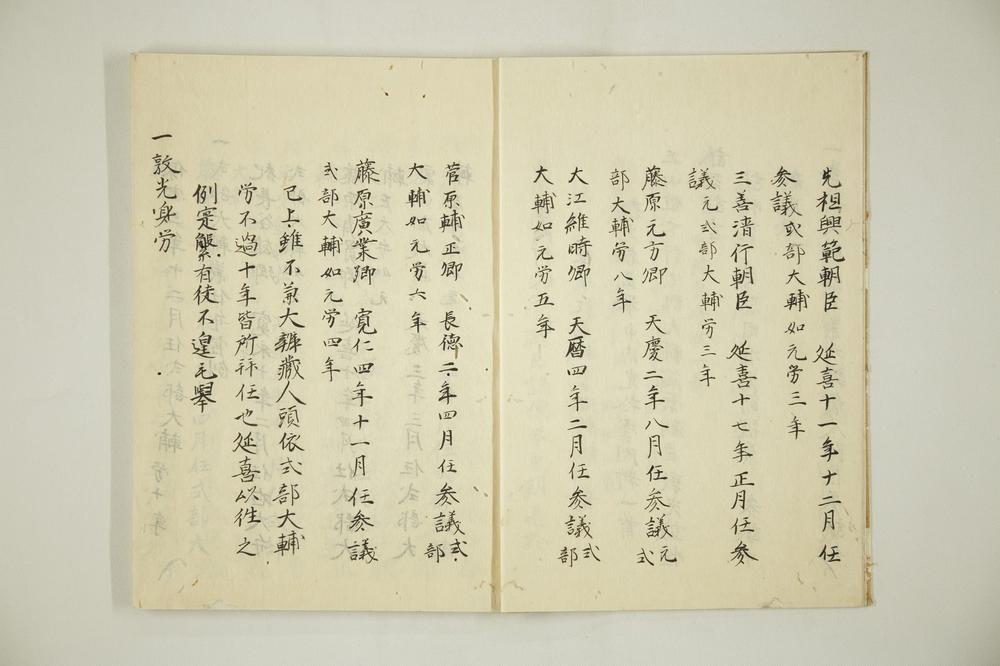 先祖興範朝臣　延喜十一年十二月任
参議式部大輔如元労三年
三善清行朝臣　延喜十七年正月任参
議元式部大輔労三年
藤原元方卿　天慶二年八月任参議元式
部大輔労八年
大江維時卿　天暦四年二月任参議式部
大輔如元労五年
菅原輔正卿　長徳二年四月任参議式部
大輔如元労六年
藤原廣業卿　寛仁四年十一月任参議
式部大輔如元労四年
已上雖不兼大辨蔵人頭依式部大輔
労不過十年皆所拜任也延喜以徃之
例寔繁有徒不遑毛擧
一敦光身労